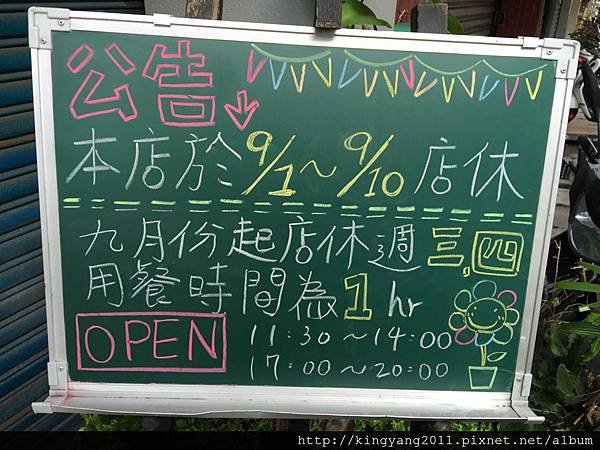 公告
本店於9/1~9/10店休
九月份起店休週三,四
用餐時間為1hr
OPEN 11:30~14:00
17:00~20:00
http://kingyang2011.pixnet.net/album